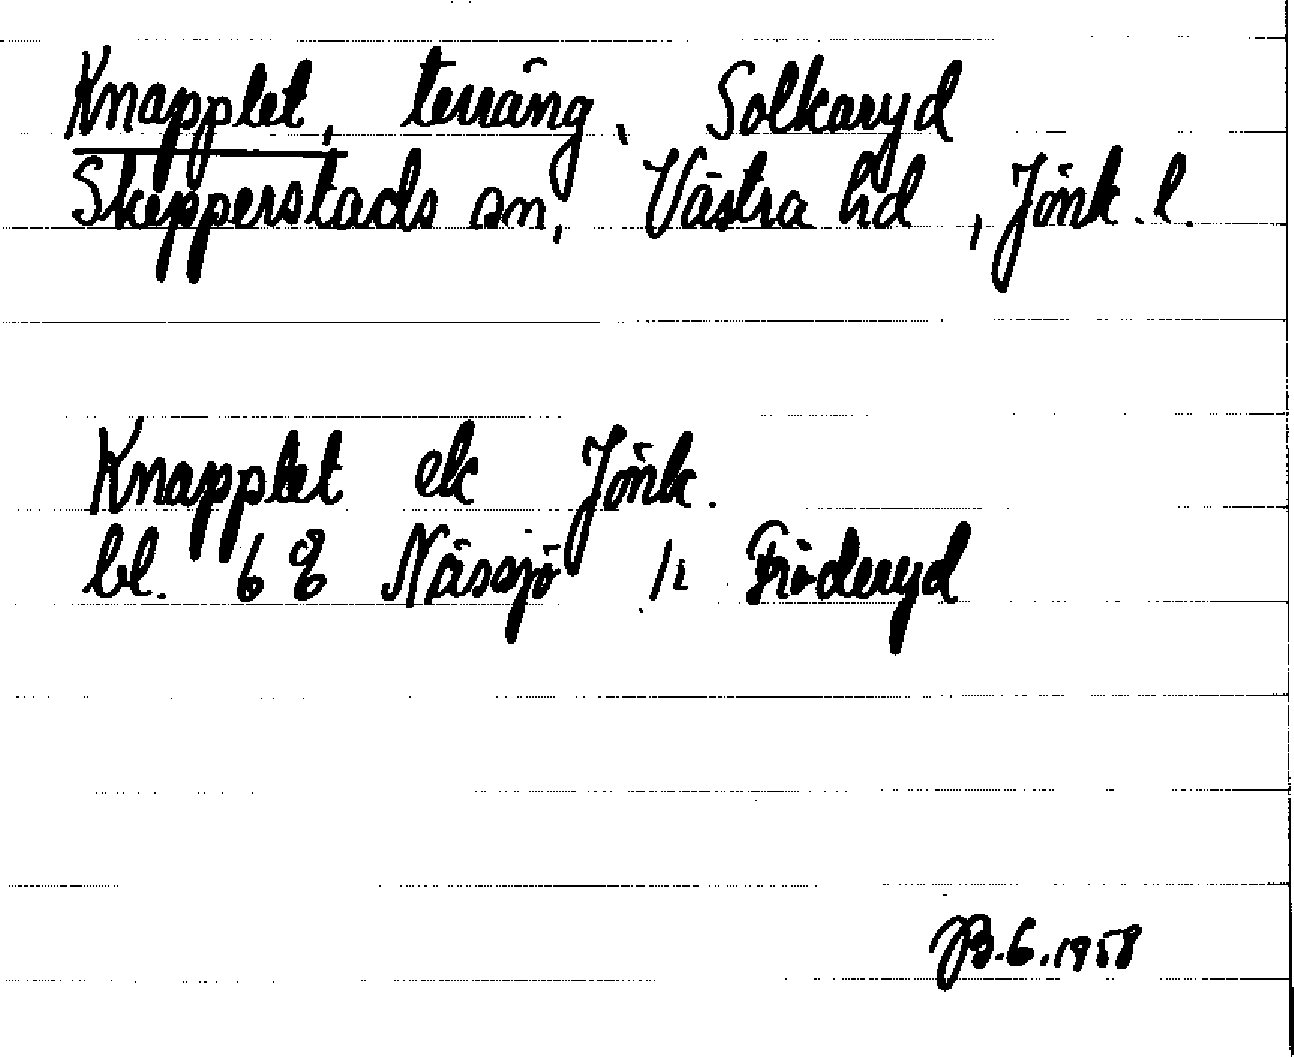 Knapplet, terräng, Solkaryd
Skepperstads sn, Västra hd, Jönk. l.
Knapplet ek Jönk.
bl. 68 Nässjö /: Fröderyd
JB. G. 1958